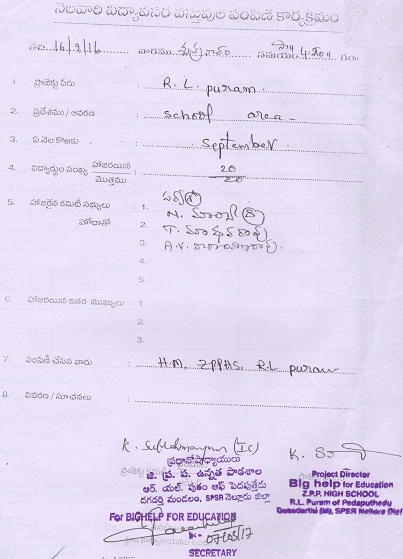 నెలవారి విద్యావసర వస్తువుల పంపిణీ కార్యక్రమం
తేది 16/9/16 వారము శుక్రవారం సమయం సా౹౹ 4.30 గం
1. ప్రాజెక్టు పేరు : R. L. puram.
2. ప్రదేశము / ఆవరణ : school area -
3. ఏ నెల కొఱకు : September
4. విద్యార్థుల సంఖ్య హాజరయిన : 20
మొత్తము 20
5. హాజరైన కమిటీ సభ్యులు : 1.
హోదాతో 2. N.
3. T. మాధవరావు
A.V. నారాయణరావు.
4.
5.
6. హాజరయిన ఇతర ముఖ్యులు : 1.
2.
3.
7. పంపిణీ చేసిన వారు : H.M, ZPPHS, R.L puram
8. వివరణ / సూచనలు :
K. (IC)
ప్రధానోపాధ్యాయులు
జి. ప్ర. ప. ఉన్నత పాఠశాల
ఆర్. యల్. పురం ఆఫ్ పెదపుత్తేడు
దగదర్తి మండలం, SPSR నెల్లూరు జిల్లా
K.
Project Director
Big help for Education
Z.P.P. HIGH SCHOOL
R.L. Puram of Pedaputhedu
Dagadarthi (M), SPSR Nellore (Dist)
For BIGHELP FOR EDUCATION
SECRETARY